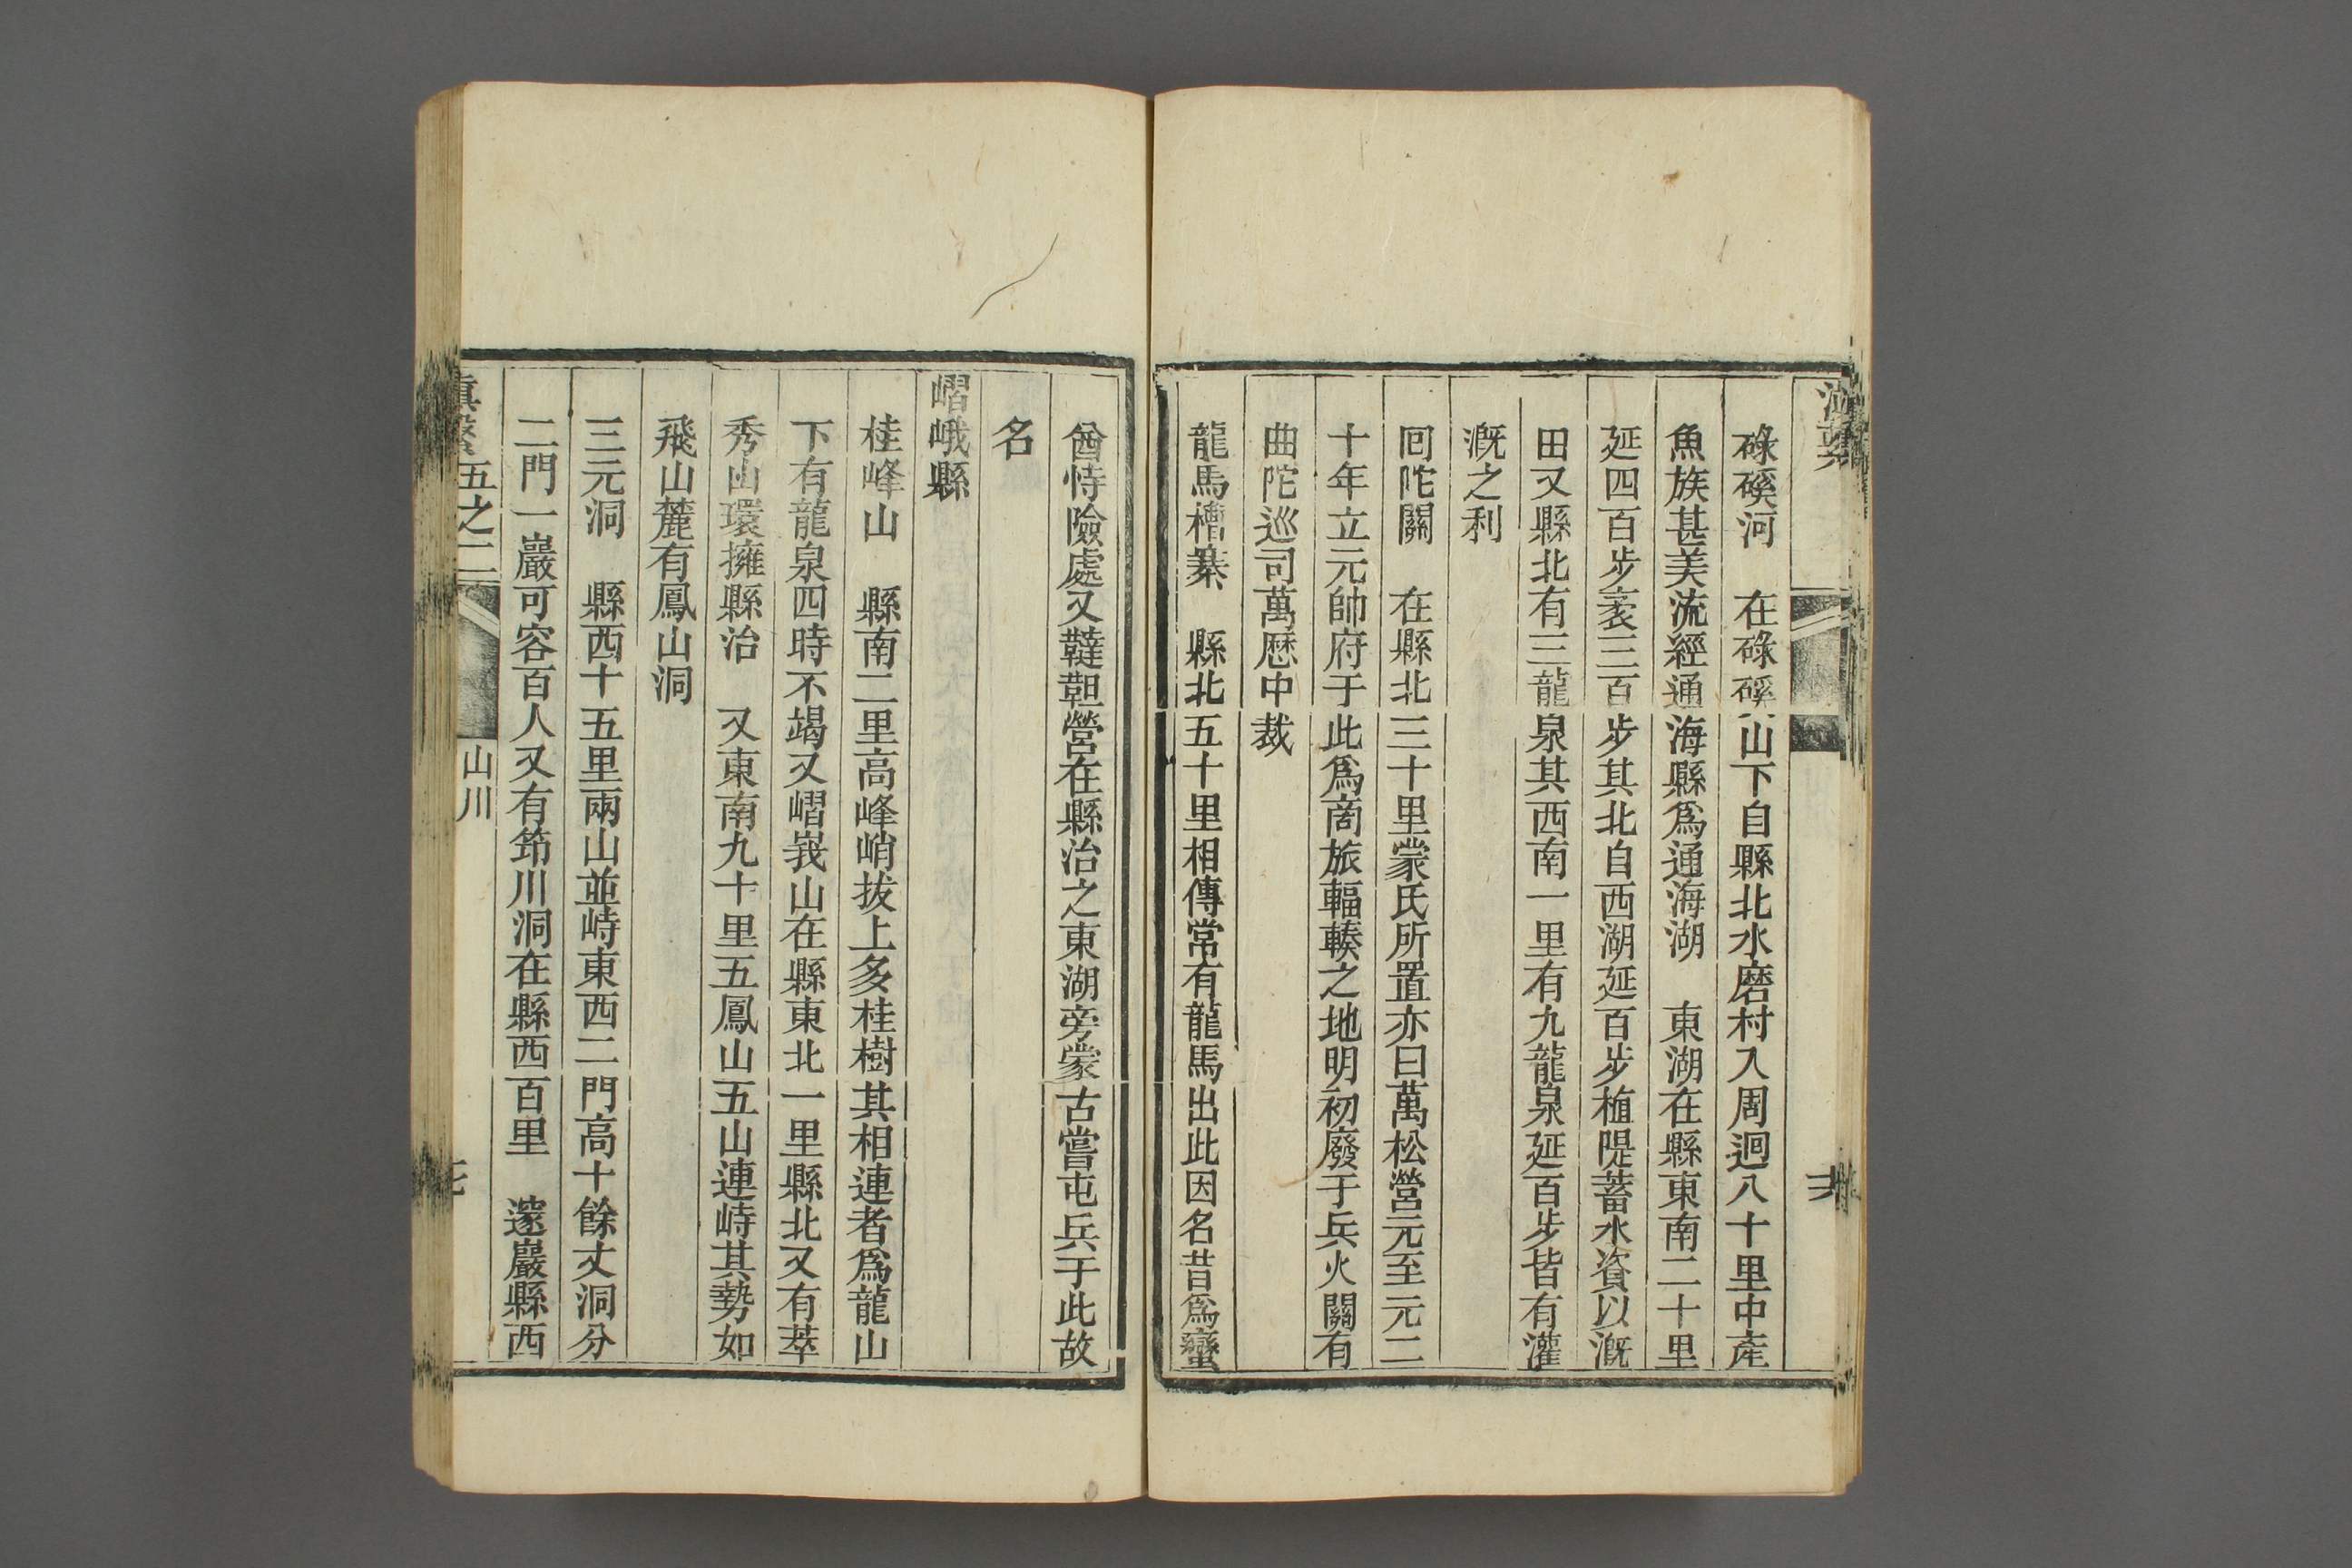 碌磎河　在碌磎山下自縣北水磨村入周迴八十里中產
魚族甚美流經通海縣爲通海湖　東湖在縣東南二十里
延四百步袤三百步其北自西湖延百步植隄蓄水資以漑
田又縣北有三龍泉其西南一里有九龍泉延百步皆有灌
漑之利
囘陀關　在縣北三十里蒙氏所置亦曰萬松營元至元二
十年立元帥府于此爲商旅輻輳之地明初廢于兵火關有
曲陀巡司萬歷中裁
龍馬槽綦　縣北五十里相傳常有龍馬出此因名昔爲蠻
酋恃險處又韃靼營在縣治之東湖旁蒙古嘗屯兵于此故
名
嶍峨縣
桂峰山　縣南二里高峰峭拔上多桂樹其相連者爲龍山
下有龍泉四時不竭又嶍峩山在縣東北一里縣北又有萃
秀山環擁縣治　又東南九十里五鳳山五山連峙其勢如
飛山麓有鳳山洞
三元洞　縣西十五里兩山並峙東西二門高十餘丈洞分
二門一巖可容百人又有筇川洞在縣西百里　邃巖縣西
滇繫五之二　山川